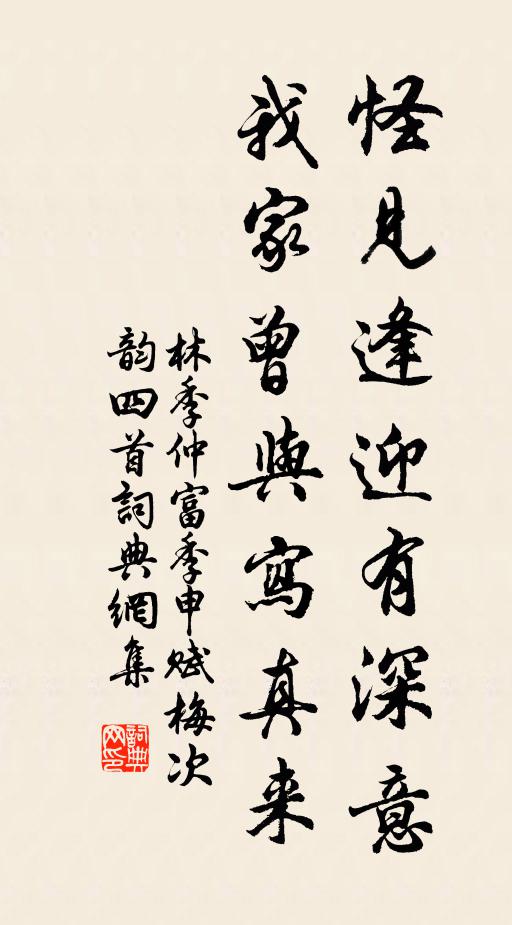 怪見逢迎有深意
我家曾與寫真来
林季仲富季申赋梅次
韵四首詞典網集
詞典網印